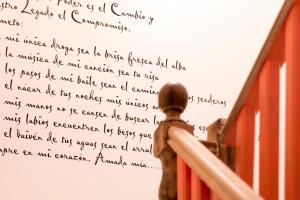 Poder es el Cambio y
stro Legado el Compromiso.
meto:
mi única droga sea la brisa fresca del alba
la música de mi canción sea tu risa
los pasos de mi baile sean el camina senderos
el nácar de tus noches mis únicos
mis manos no se cansen de buscar la
mis labios encuentren los besos que
el baivén de tus aguas sean el arrul
pre en mi corazón. Amada mía....